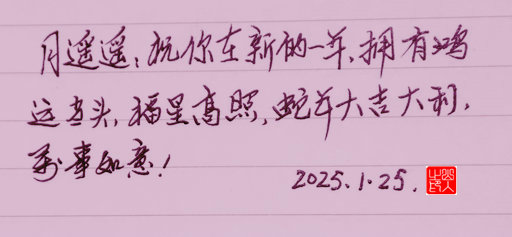 月遥遥：祝你在新的一年，拥有鸿
运当头，福星高照，蛇年大吉大利，
万事如意！
2025.1.25.